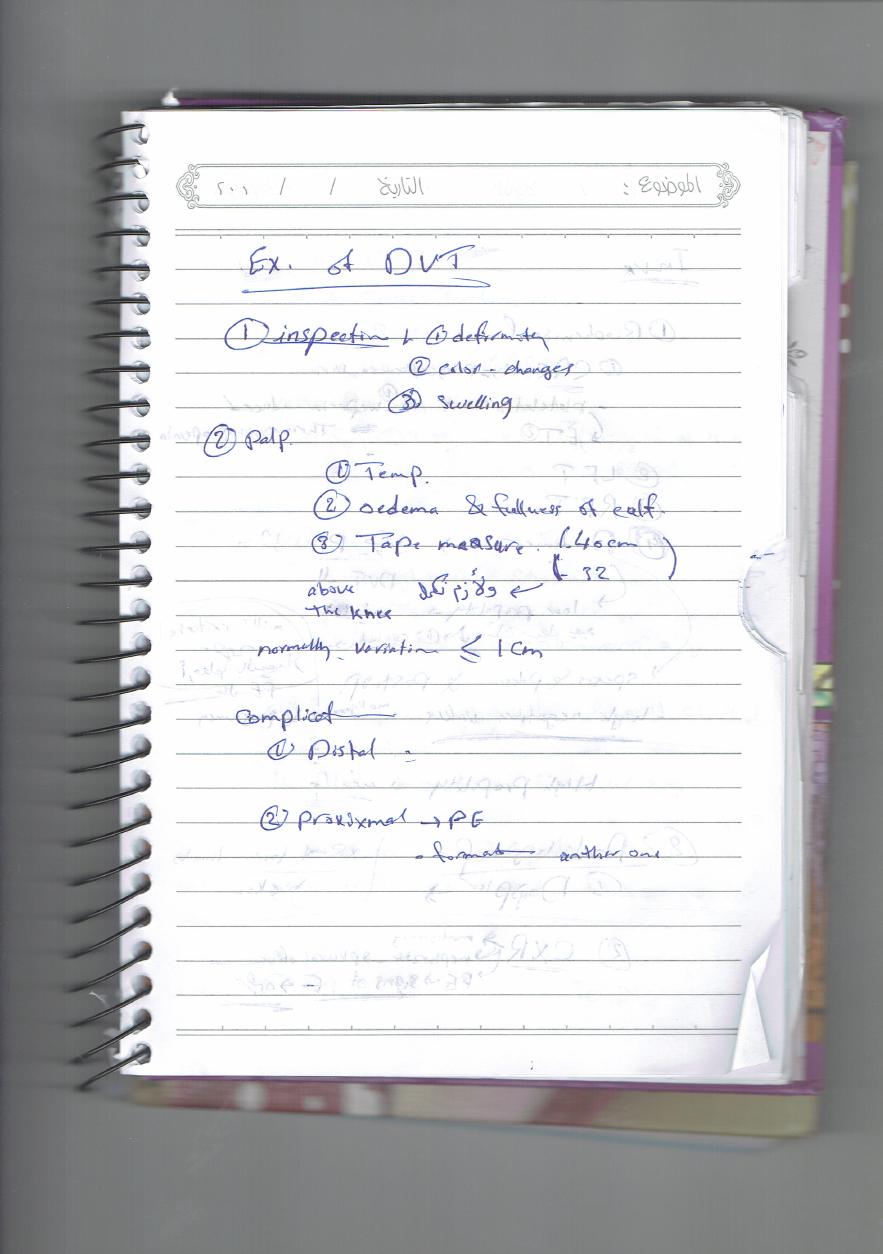 الموضوع : التاريخ / / ٢٠٠١
Ex. of DVT
① inspection ① deformity
② color - changes
③ swelling
② Palp.
① Temp.
② oedema & fullness of calf.
③ Tape measure. (40 cm
32 )
above ولازم ←
the knee
normally. variation ≤ 1 cm
Complicat
① Distal :
② Proxixmal → PE
. format anther one